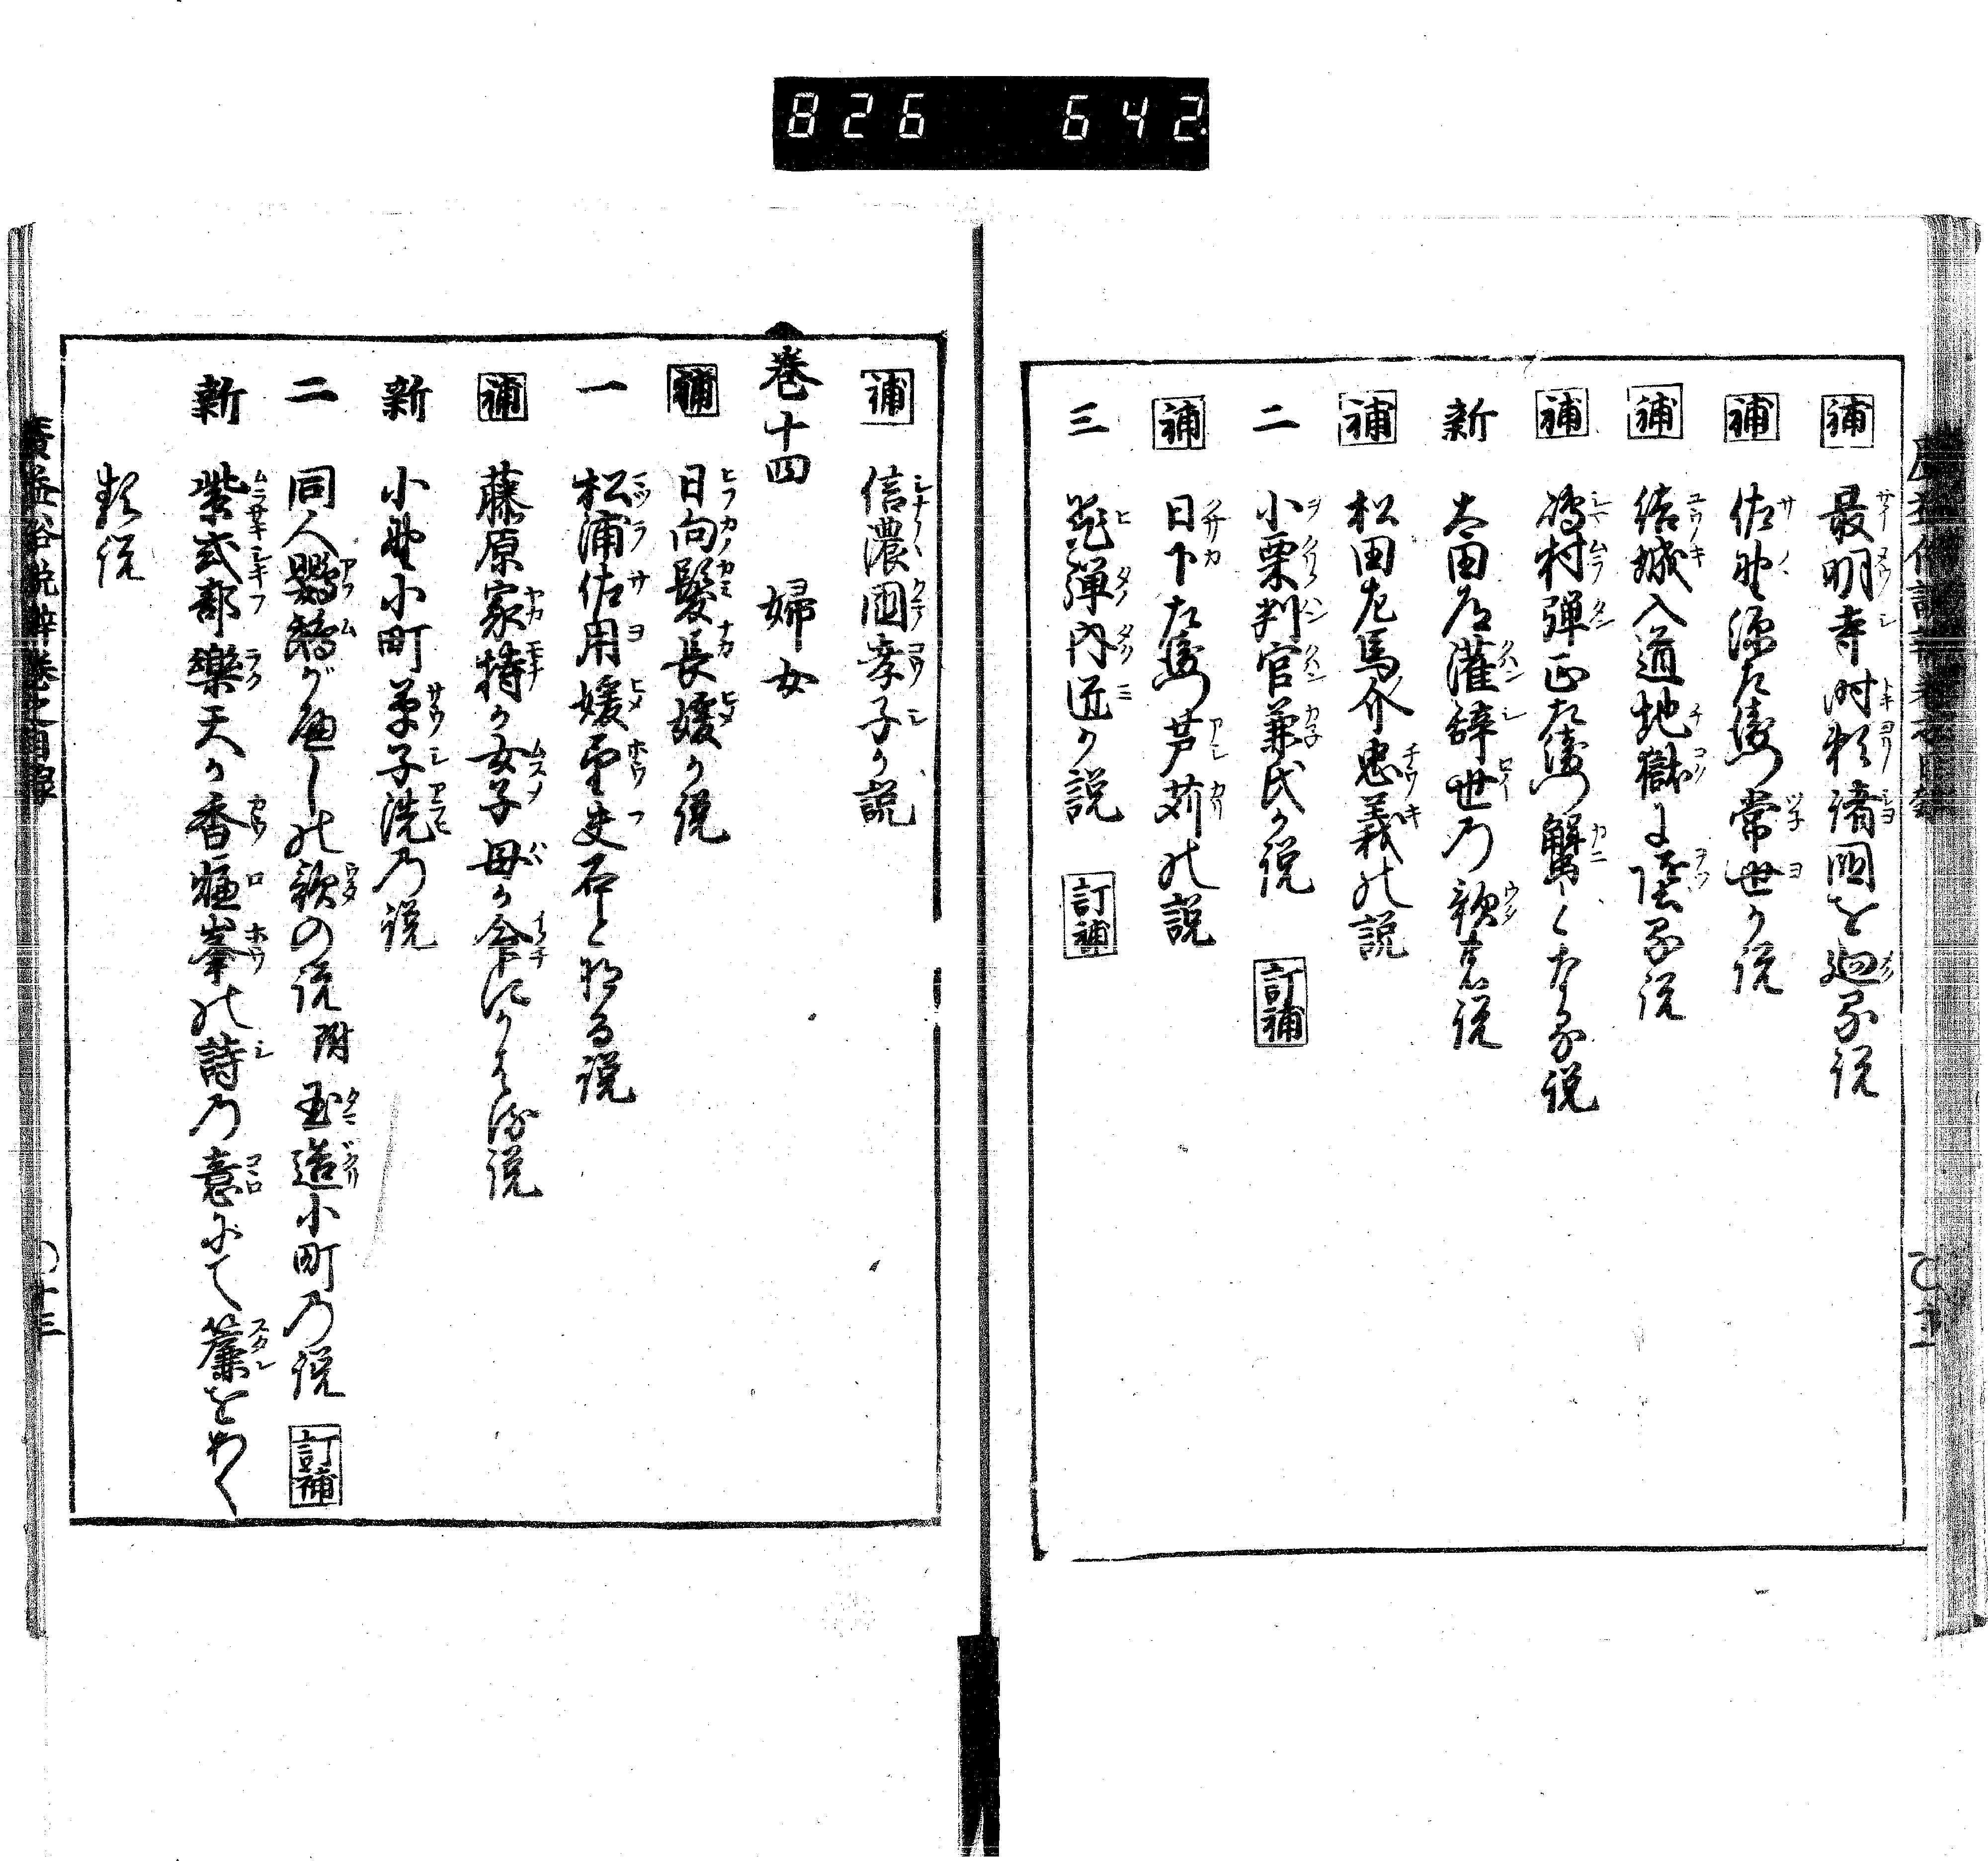 826 642
補 最明寺時頼諸国を廻る説
補 佐野源左衛門常世が説
補 結城入道地獄に堕る説
補 嶋村弾正左衛門蟹となる説
新 太田道灌辞世の歌を説
補 松田左馬介忠義の説
二 小栗判官兼氏が説 訂補
補 日下左衛門芦苅の説
三 飛弾内匠が説 訂補
補 信濃国孝子が説
巻十四 婦女
補 日向髪長媛が説
一 松浦佐用媛望夫石と化る説
補 藤原家持が女子母が命にかはる説
新 小野小町草子洗の説
二 同人鸚鵡がへしの歌の説 附 玉造小町の説 訂補
新 紫式部楽天が香炉峯の詩の意にて簾をあく
類説
廣益俗説辨巻之目録